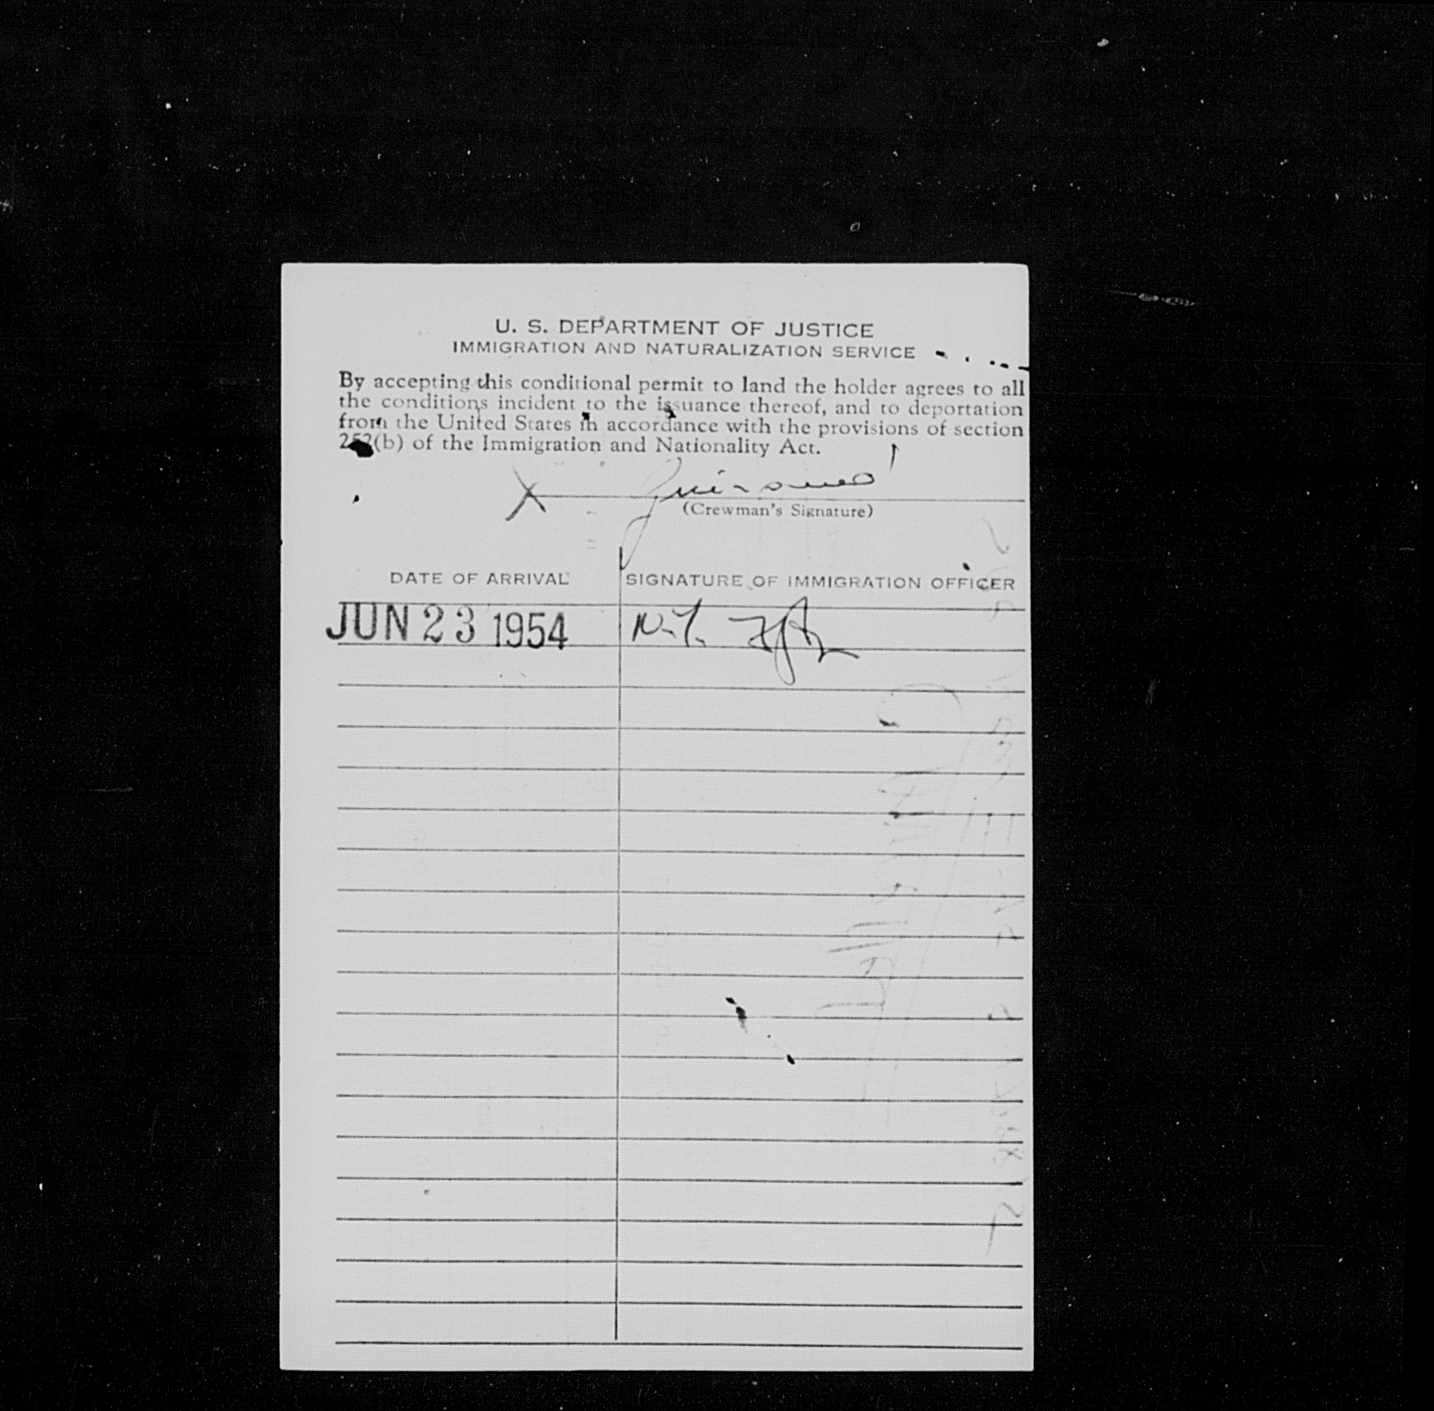 U. S. DEPARTMENT OF JUSTICE
IMMIGRATION AND NATURALIZATION SERVICE
By accepting this conditional permit to land the holder agrees to all
the conditions incident to the issuance thereof, and to deportation
from the United States in accordance with the provisions of section
252(b) of the Immigration and Nationality Act.
X
(Crewman's Signature)
DATE OF ARRIVAL SIGNATURE OF IMMIGRATION OFFICER
JUN 23 1954 N.Y.